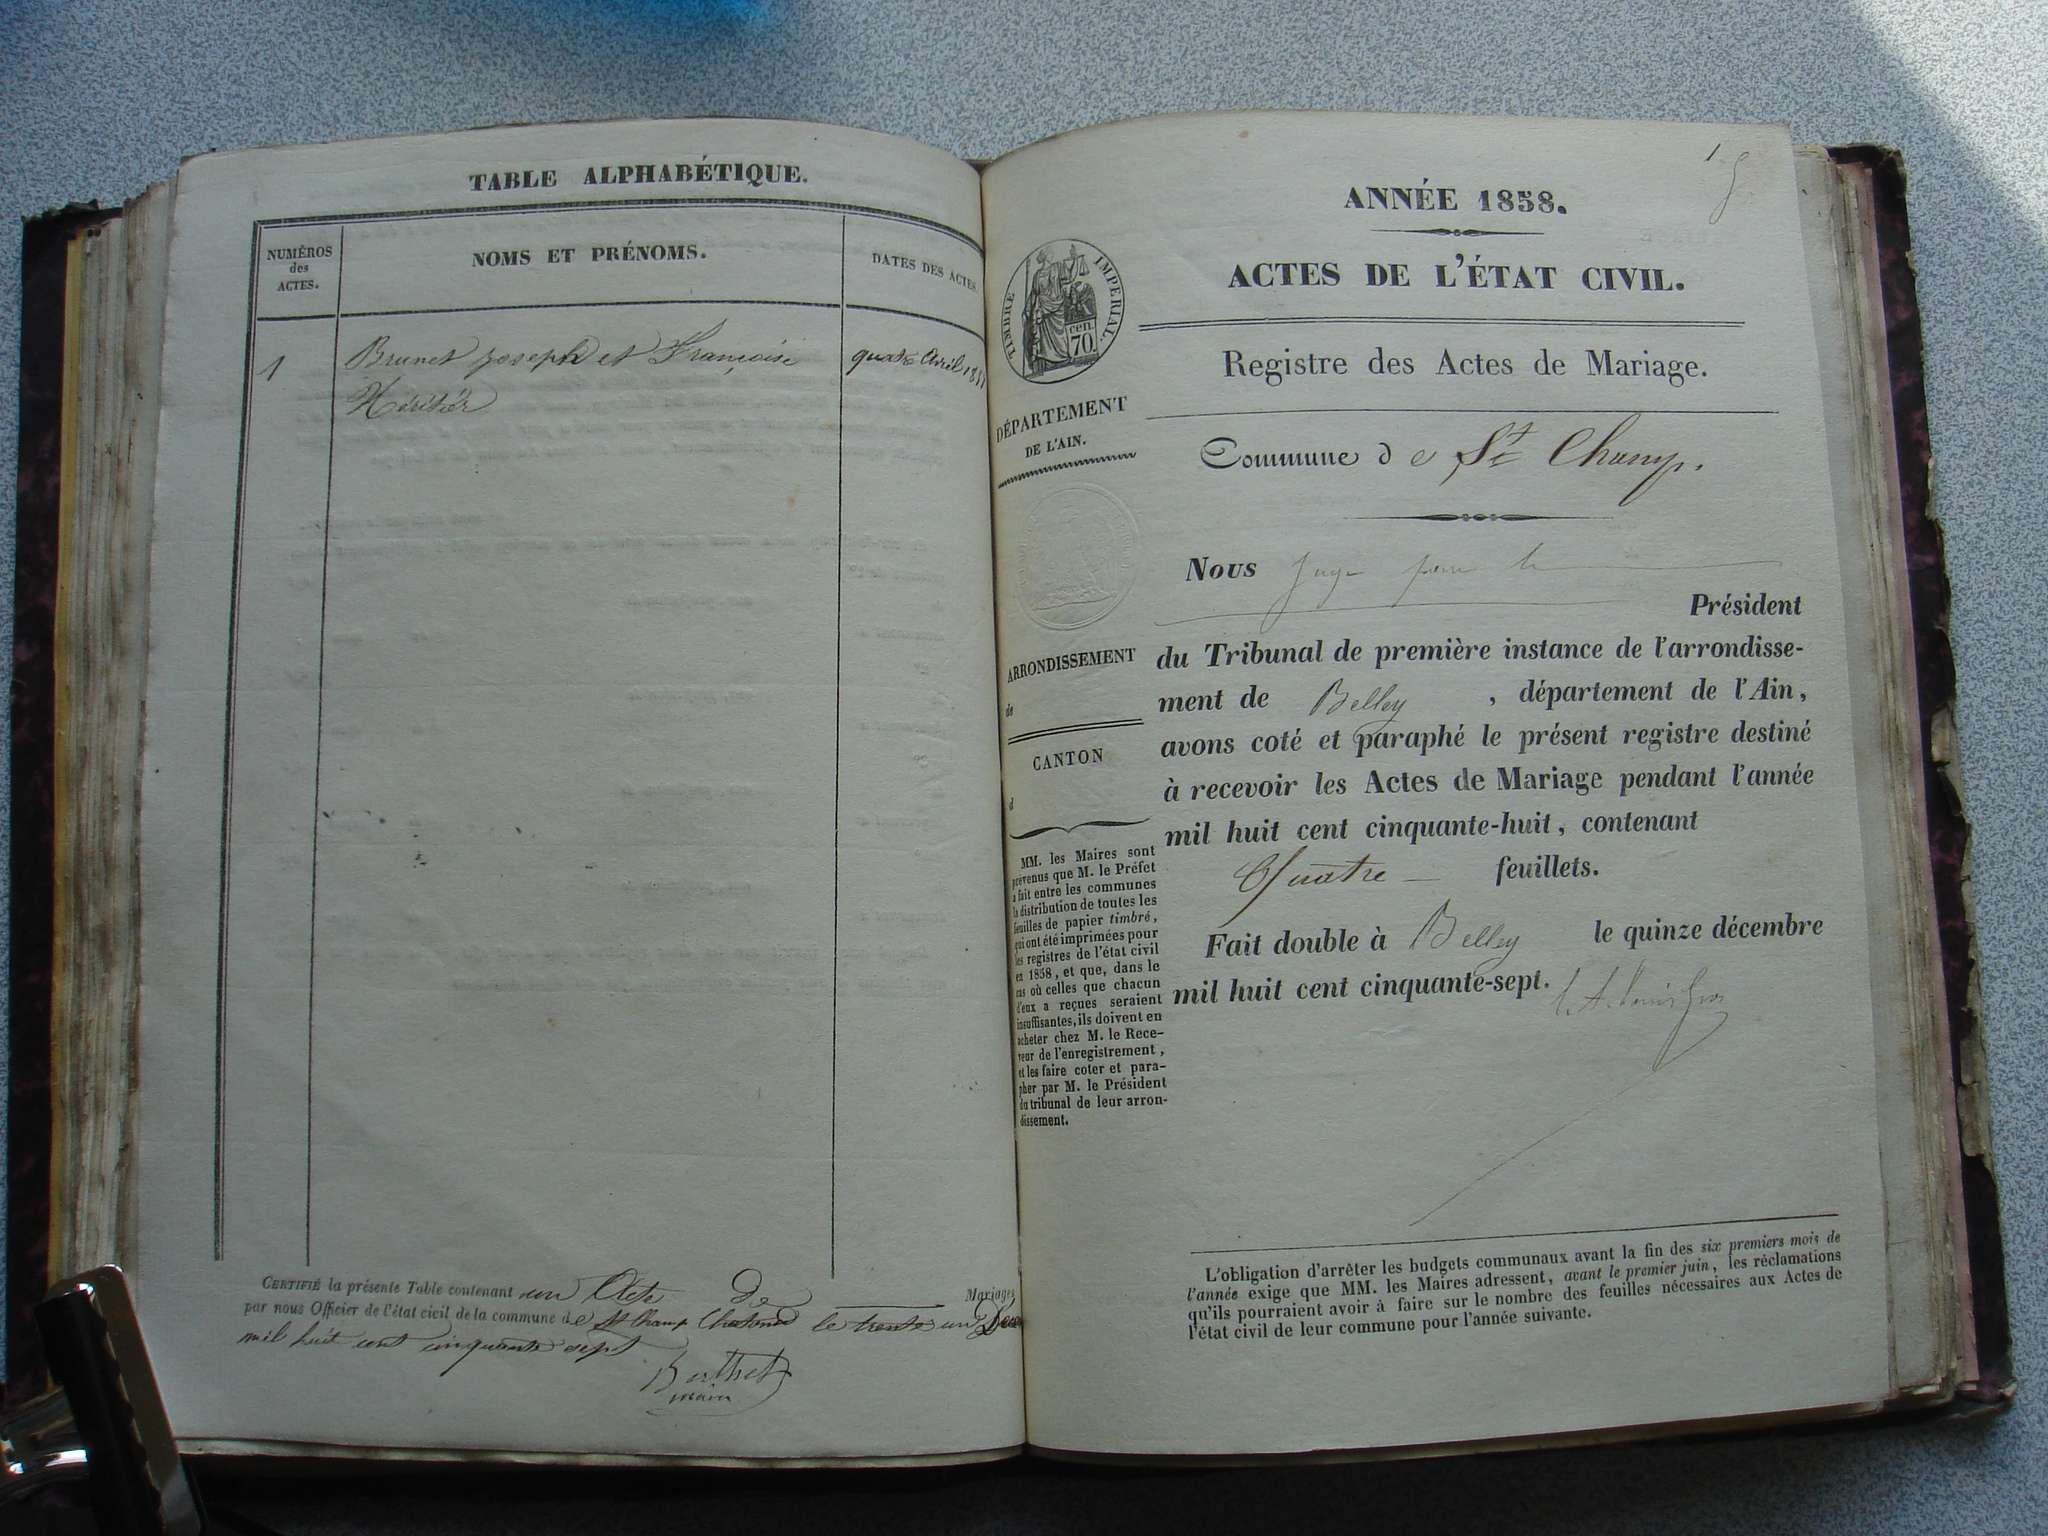 TABLE ALPHABÉTIQUE.
NUMÉROS
des
ACTES.
NOMS ET PRÉNOMS.
DATES DES ACTES.
1
Brunet Joseph et Françoise
Héritier
quatre Avril
CERTIFIÉ la présente Table contenant un Acte de Mariages
par nous Officier de l'état civil de la commune de St Champ Chatonod le trente un
mil huit cent cinquante sept
Berthet
maire
1
ANNÉE 1858.
ACTES DE L'ÉTAT CIVIL.
TIMBRE IMPERIAL.
cen.
70.
Registre des Actes de Mariage.
DÉPARTEMENT
DE L'AIN.
Commune de St Champ.
Nous Juge pour le
Président
ARRONDISSEMENT
de
du Tribunal de première instance de l'arrondisse-
ment de Belley, département de l'Ain,
CANTON
d
avons coté et paraphé le présent registre destiné
à recevoir les Actes de Mariage pendant l'année
mil huit cent cinquante-huit, contenant
Quatre — feuillets.
Fait double à Belley le quinze décembre
mil huit cent cinquante-sept.
MM. les Maires sont
prévenus que M. le Préfet
a fait entre les communes
la distribution de toutes les
feuilles de papier timbré,
qui ont été imprimées pour
les registres de l'état civil
en 1858, et que, dans le
cas où celles que chacun
d'eux a reçues seraient
insuffisantes, ils doivent en
acheter chez M. le Rece-
veur de l'enregistrement,
et les faire coter et para-
pher par M. le Président
du tribunal de leur arron-
dissement.
L'obligation d'arrêter les budgets communaux avant la fin des six premiers mois de
l'année exige que MM. les Maires adressent, avant le premier juin, les réclamations
qu'ils pourraient avoir à faire sur le nombre des feuilles nécessaires aux Actes de
l'état civil de leur commune pour l'année suivante.